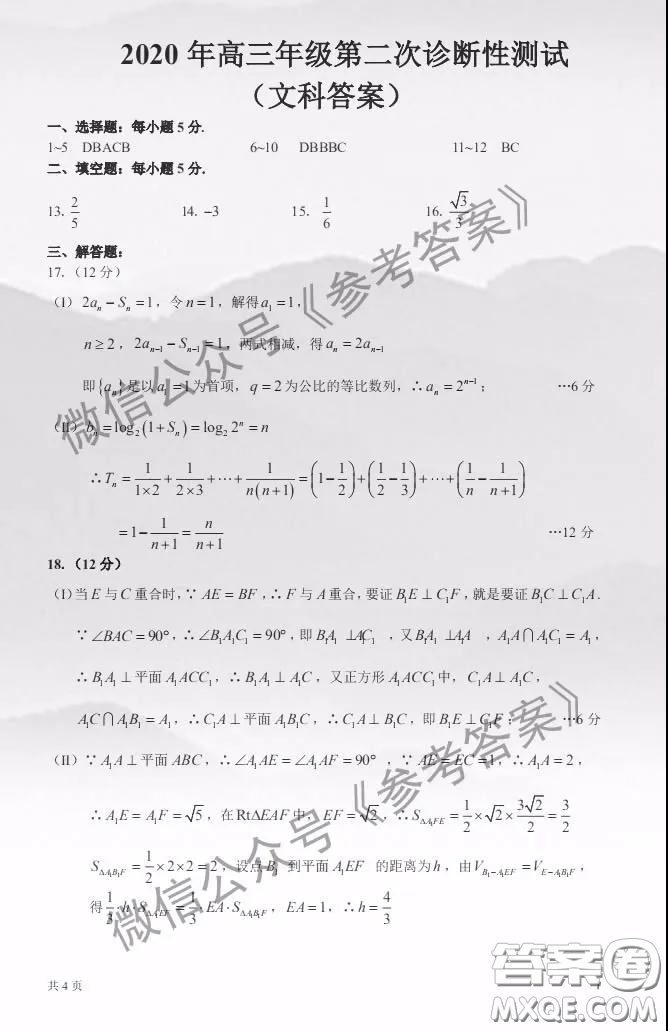 2020 年高三年级第二次诊断性测试
（文科答案）
一、选择题：每小题 5 分.
1~5 DBACB 6~10 DBBBC 11~12 BC
二、填空题：每小题 5 分.
13. 2/5 14. −3 15. 1/6 16. √3/3
三、解答题：
17.（12 分）
（I）2aₙ − Sₙ = 1，令 n = 1，解得 a₁ = 1，
n ≥ 2，2aₙ₋₁ − Sₙ₋₁ = 1，两式相减，得 aₙ = 2aₙ₋₁
即{aₙ}是以 a₁ = 1 为首项，q = 2 为公比的等比数列，∴ aₙ = 2ⁿ⁻¹； …6 分
（II）bₙ = log₂(1 + Sₙ) = log₂ 2ⁿ = n
∴ Tₙ = 1/(1×2) + 1/(2×3) + ⋯ + 1/(n(n+1)) = (1 − 1/2) + (1/2 − 1/3) + ⋯ + (1/n − 1/(n+1))
= 1 − 1/(n+1) = n/(n+1) …12 分
18.（12 分）
（I）当 E 与 C 重合时，∵ AE = BF，∴ F 与 A 重合，要证 B₁E ⊥ C₁F，就是要证 B₁C ⊥ C₁A.
∵ ∠BAC = 90°，∴ ∠B₁A₁C₁ = 90°，即 B₁A₁ ⊥ A₁C₁，又 B₁A₁ ⊥ A₁A，A₁A ⋂ A₁C₁ = A₁，
∴ B₁A₁ ⊥ 平面 A₁ACC₁，∴ B₁A₁ ⊥ A₁C，又正方形 A₁ACC₁ 中，C₁A ⊥ A₁C，
A₁C ⋂ A₁B₁ = A₁，∴ C₁A ⊥ 平面 A₁B₁C，∴ C₁A ⊥ B₁C，即 B₁E ⊥ C₁F； …6 分
（II）∵ A₁A ⊥ 平面 ABC，∴ ∠A₁AE = ∠A₁AF = 90°，∵ AE = EC = 1，∴ A₁A = 2，
∴ A₁E = A₁F = √5，在 Rt∆EAF 中，EF = √2，∴ S∆A₁FE = 1/2 × √2 × 3√2/2 = 3/2
S∆A₁B₁F = 1/2 × 2 × 2 = 2，设点 B₁ 到平面 A₁EF 的距离为 h，由 V_B₁−A₁EF = V_E−A₁B₁F，
得 1/3 · h · S∆A₁EF = 1/3 · EA · S∆A₁B₁F，EA = 1，∴ h = 4/3
共 4 页 1
微信公众号《参考答案》
微信公众号《参考答案》
答案卷
MXQE.COM